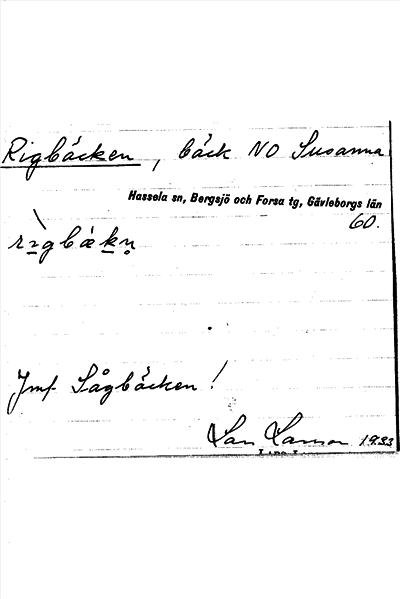 Rigbäcken, bäck NO Susanna
Hassela sn, Bergsjö och Forsa tg, Gävleborgs län
60.
Jmf Sågbäcken!
1933